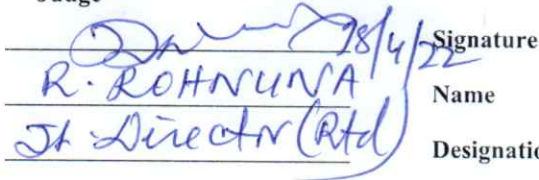 18/4/22 Signature
R. ROHNUNA Name
Jt. Director (Rtd) Designatio